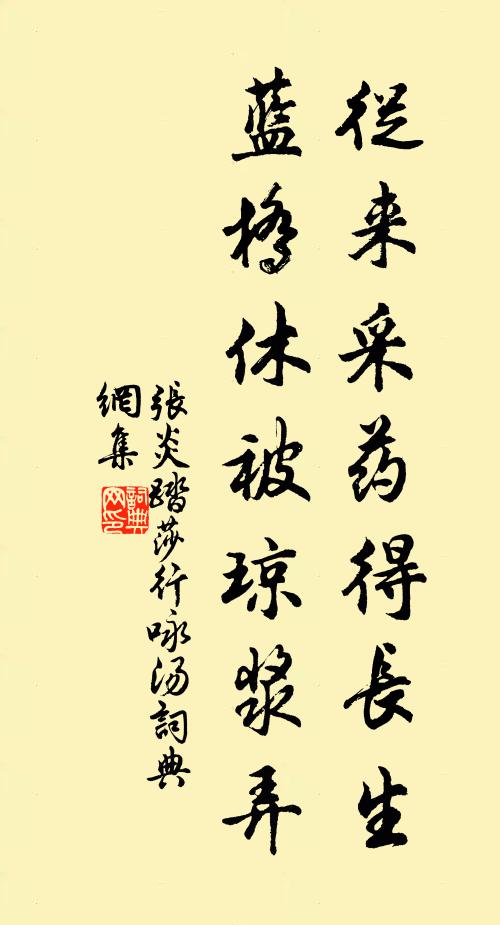 從来采药得長生
藍橋休被琼漿弄
張炎踏莎行咏汤詞典
網集
詞典
网印